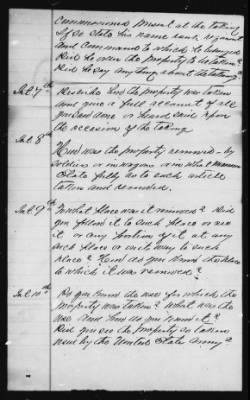 commissioned present at the taking
If so state his name rank regiment
and command to which he belonged
Did he order the property to be taken?
Did he say anything about the taking?
Int 7th Describe how the property was taken
and give a full account of all
you saw done or heard said upon
the occasion of the taking
Int 8th How was the property removed - by
soldiers or in wagons or in what manner
State fully as to each article
taken and removed.
Int 9th To what place was it removed? Did
you follow it to such place or see
it or any portion of it at any
such place or on its way to such
place? How do you know the place
to which it was removed?
Int 10th Do you know the use for which the
property was taken? What was the
use and how do you know it?
Did you see the property so taken
used by the United States Army?